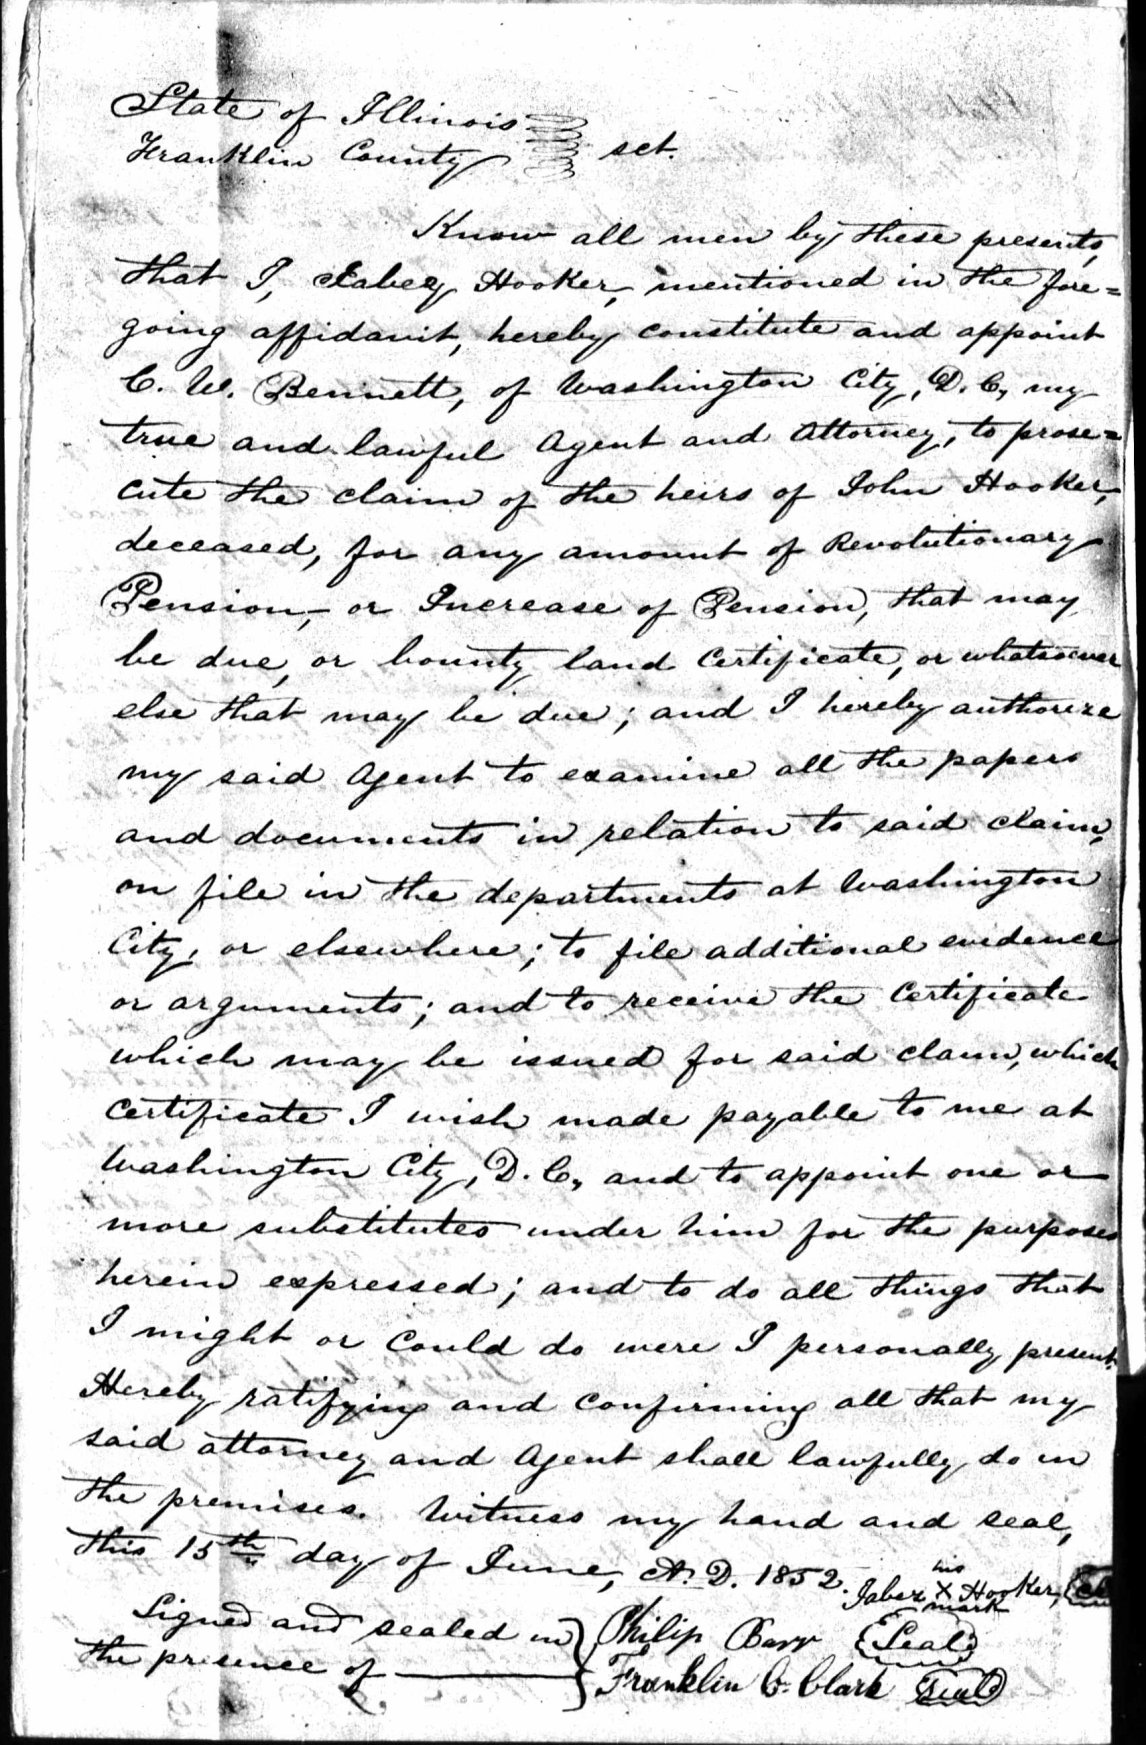 State of Illinois
Franklin County } sct.
Know all men by these presents,
that I, Jabez Hooker, mentioned in the fore=
going affidavit, hereby constitute and appoint
C. W. Bennett, of Washington City, D. C., my
true and lawful Agent and Attorney, to prose=
cute the claim of the heirs of John Hooker,
deceased, for any amount of Revolutionary
Pension, or Increase of Pension, that may
be due, or bounty land Certificate, or whatsoever
else that may be due; and I hereby authorize
my said Agent to examine all the papers
and documents in relation to said claim,
on file in the departments at Washington
City, or elsewhere; to file additional evidence
or arguments; and to receive the Certificate
which may be issued for said claim, which
Certificate I wish made payable to me at
Washington City, D. C., and to appoint one or
more substitutes under him for the purposes
herein expressed; and to do all things that
I might or Could do were I personally present.
Hereby ratifying and Confirming all that my
said attorney and Agent shall lawfully do in
the premises. Witness my hand and seal,
this 15th day of June, A. D. 1852.
his
Jabez X Hooker,
mark
Signed and sealed in } Philip Barr {Seal}
the presence of } Franklin C. Clark {Seal}